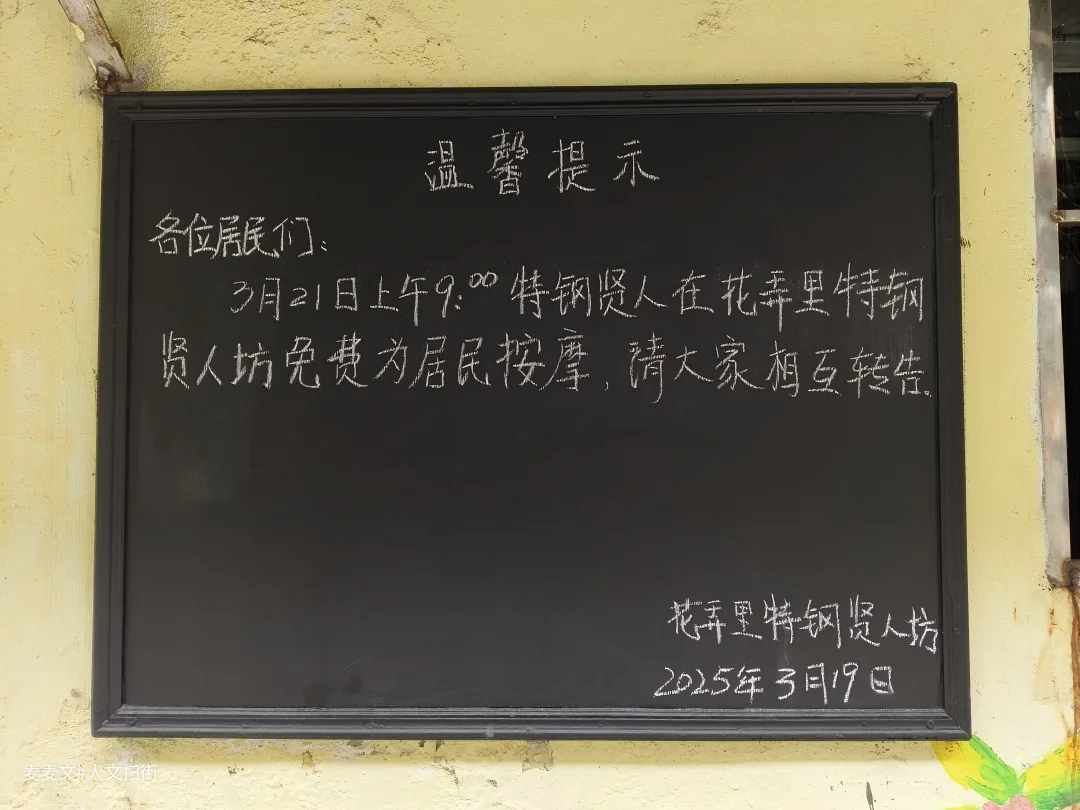 温馨提示
各位居民们:
3月21日上午9:00特钢贤人在花弄里特钢
贤人坊免费为居民按摩,请大家相互转告。
花弄里特钢贤人坊
2025年3月19日
麦麦文#人文扫街